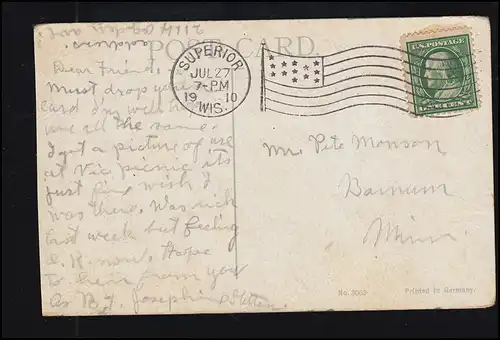 2114 Ogden ave
address
POST CARD.
SUPERIOR
JUL 27
7-PM
1910
WIS.
U.S. POSTAGE
Dear Friend,
Must drop you a
card
are all the same.
I got a picture of
at Vic. picnic its
just fine wish I
was there. Was sick
last week but feeling
O.K. now. Hope
to hear from you
As B.F. Josephine
Mr. Pete Monson
Barnum
Minn.
No. 3063
Printed in Germany.